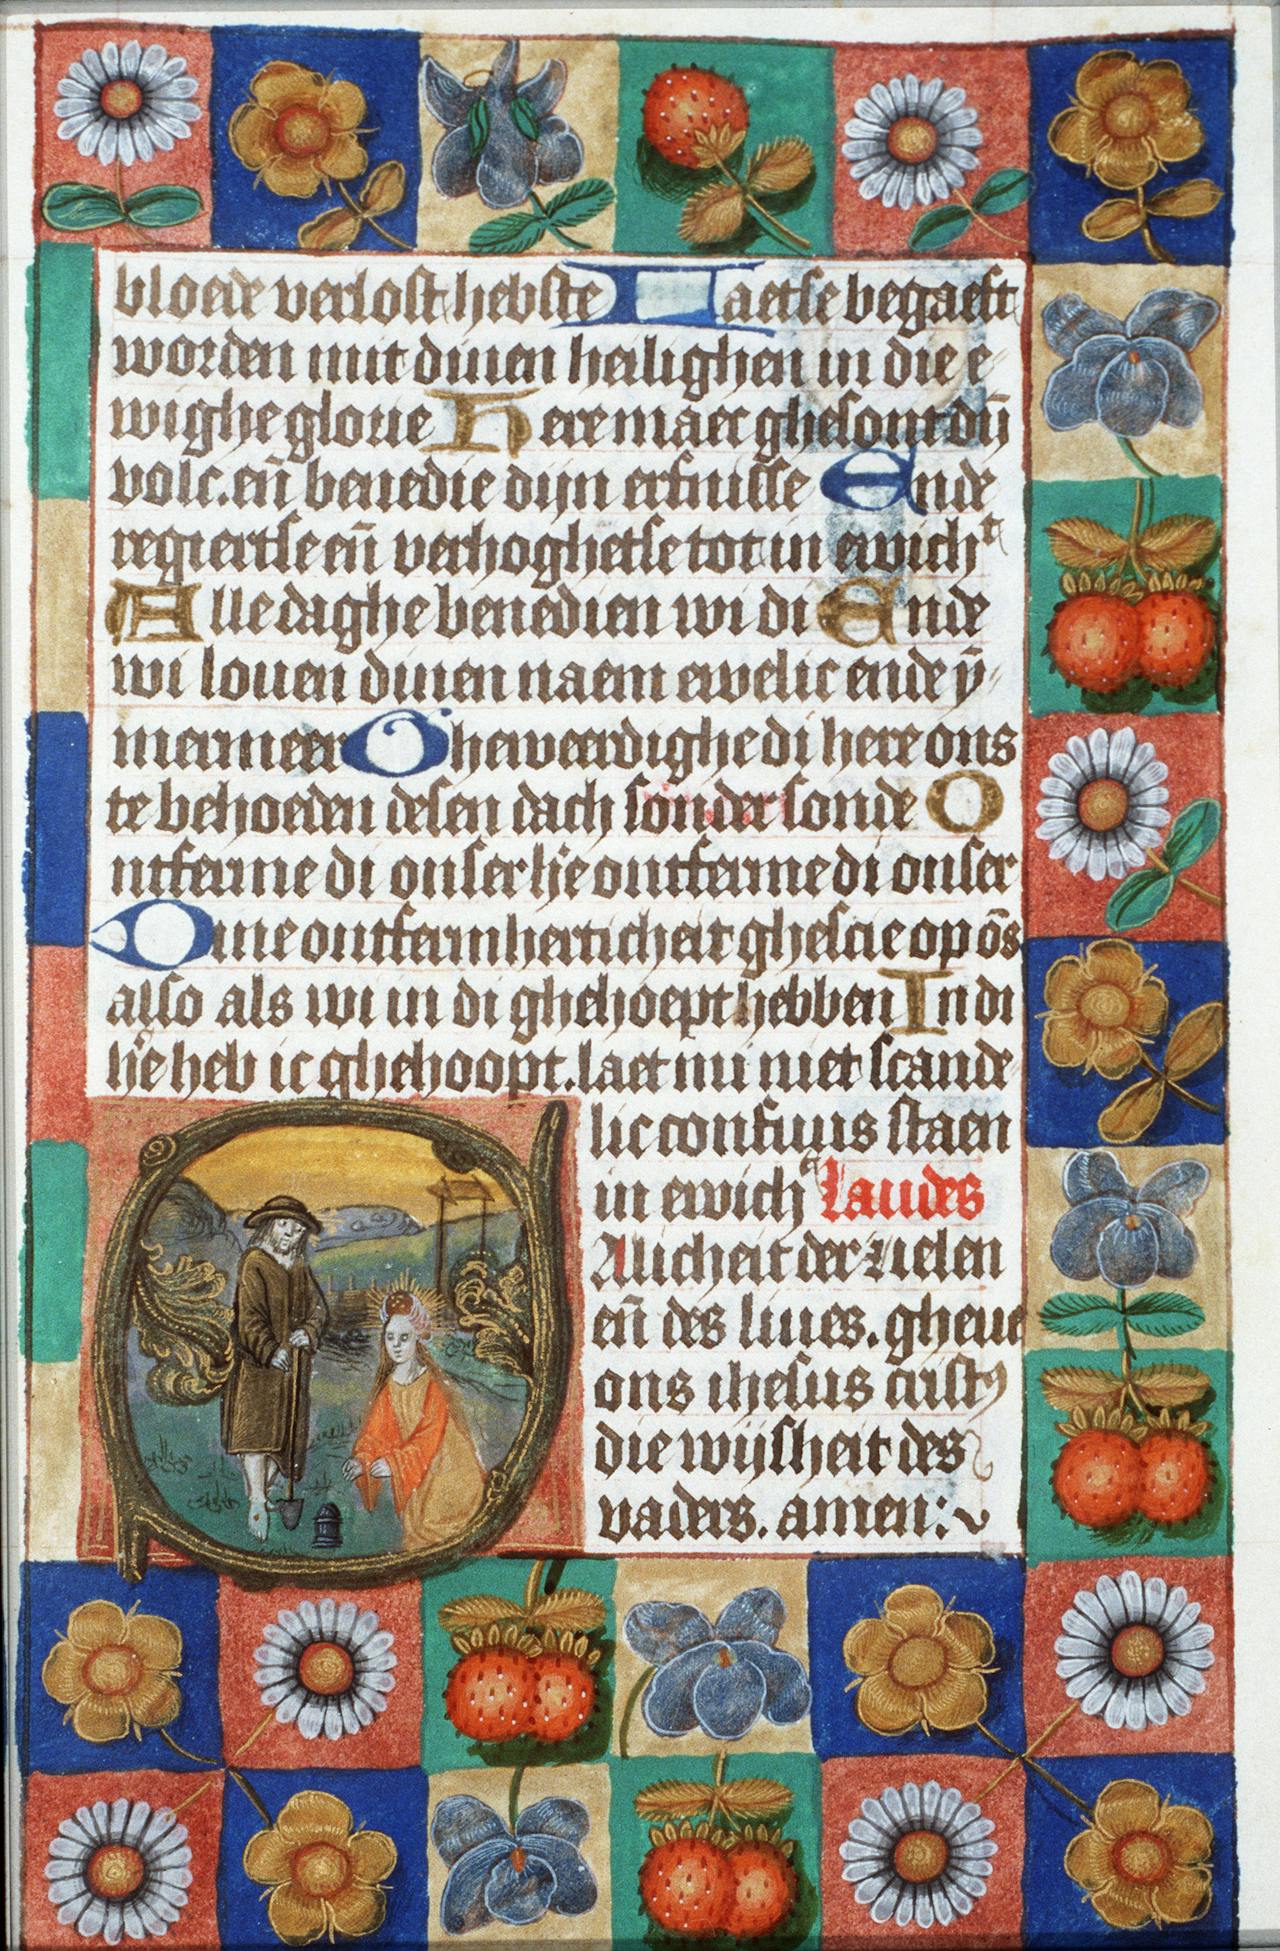 bloede verlost hebste Maetse begaeft
worden mit dinen heilighen in die e
wighe glorie Here maec ghesont dij̄
volc. eñ benedie dijn erfnisse Ende
regiertse eñ verhoghetse tot in ewichᵗ
Alle daghe benedien wi di Ende
wi louen dinen naem ewelic ende ÿ
mermeer Ghewaerdighe di here ons
te behoeden desen dach sonder sonde O
ntferme di onser h̄e ontferme di onser
Dine ontfermherticheit ghescie op ōs
also als wi in di ghehoept hebben In di
h̄e heb ic ghehoopt. laet mi niet scande
lic confuus staen
in ewichᵗ Laudes
Salicheit der zielen
eñ des liues. gheue
ons ihesus cristꝰ
die wijsheit des
vaders. amen: